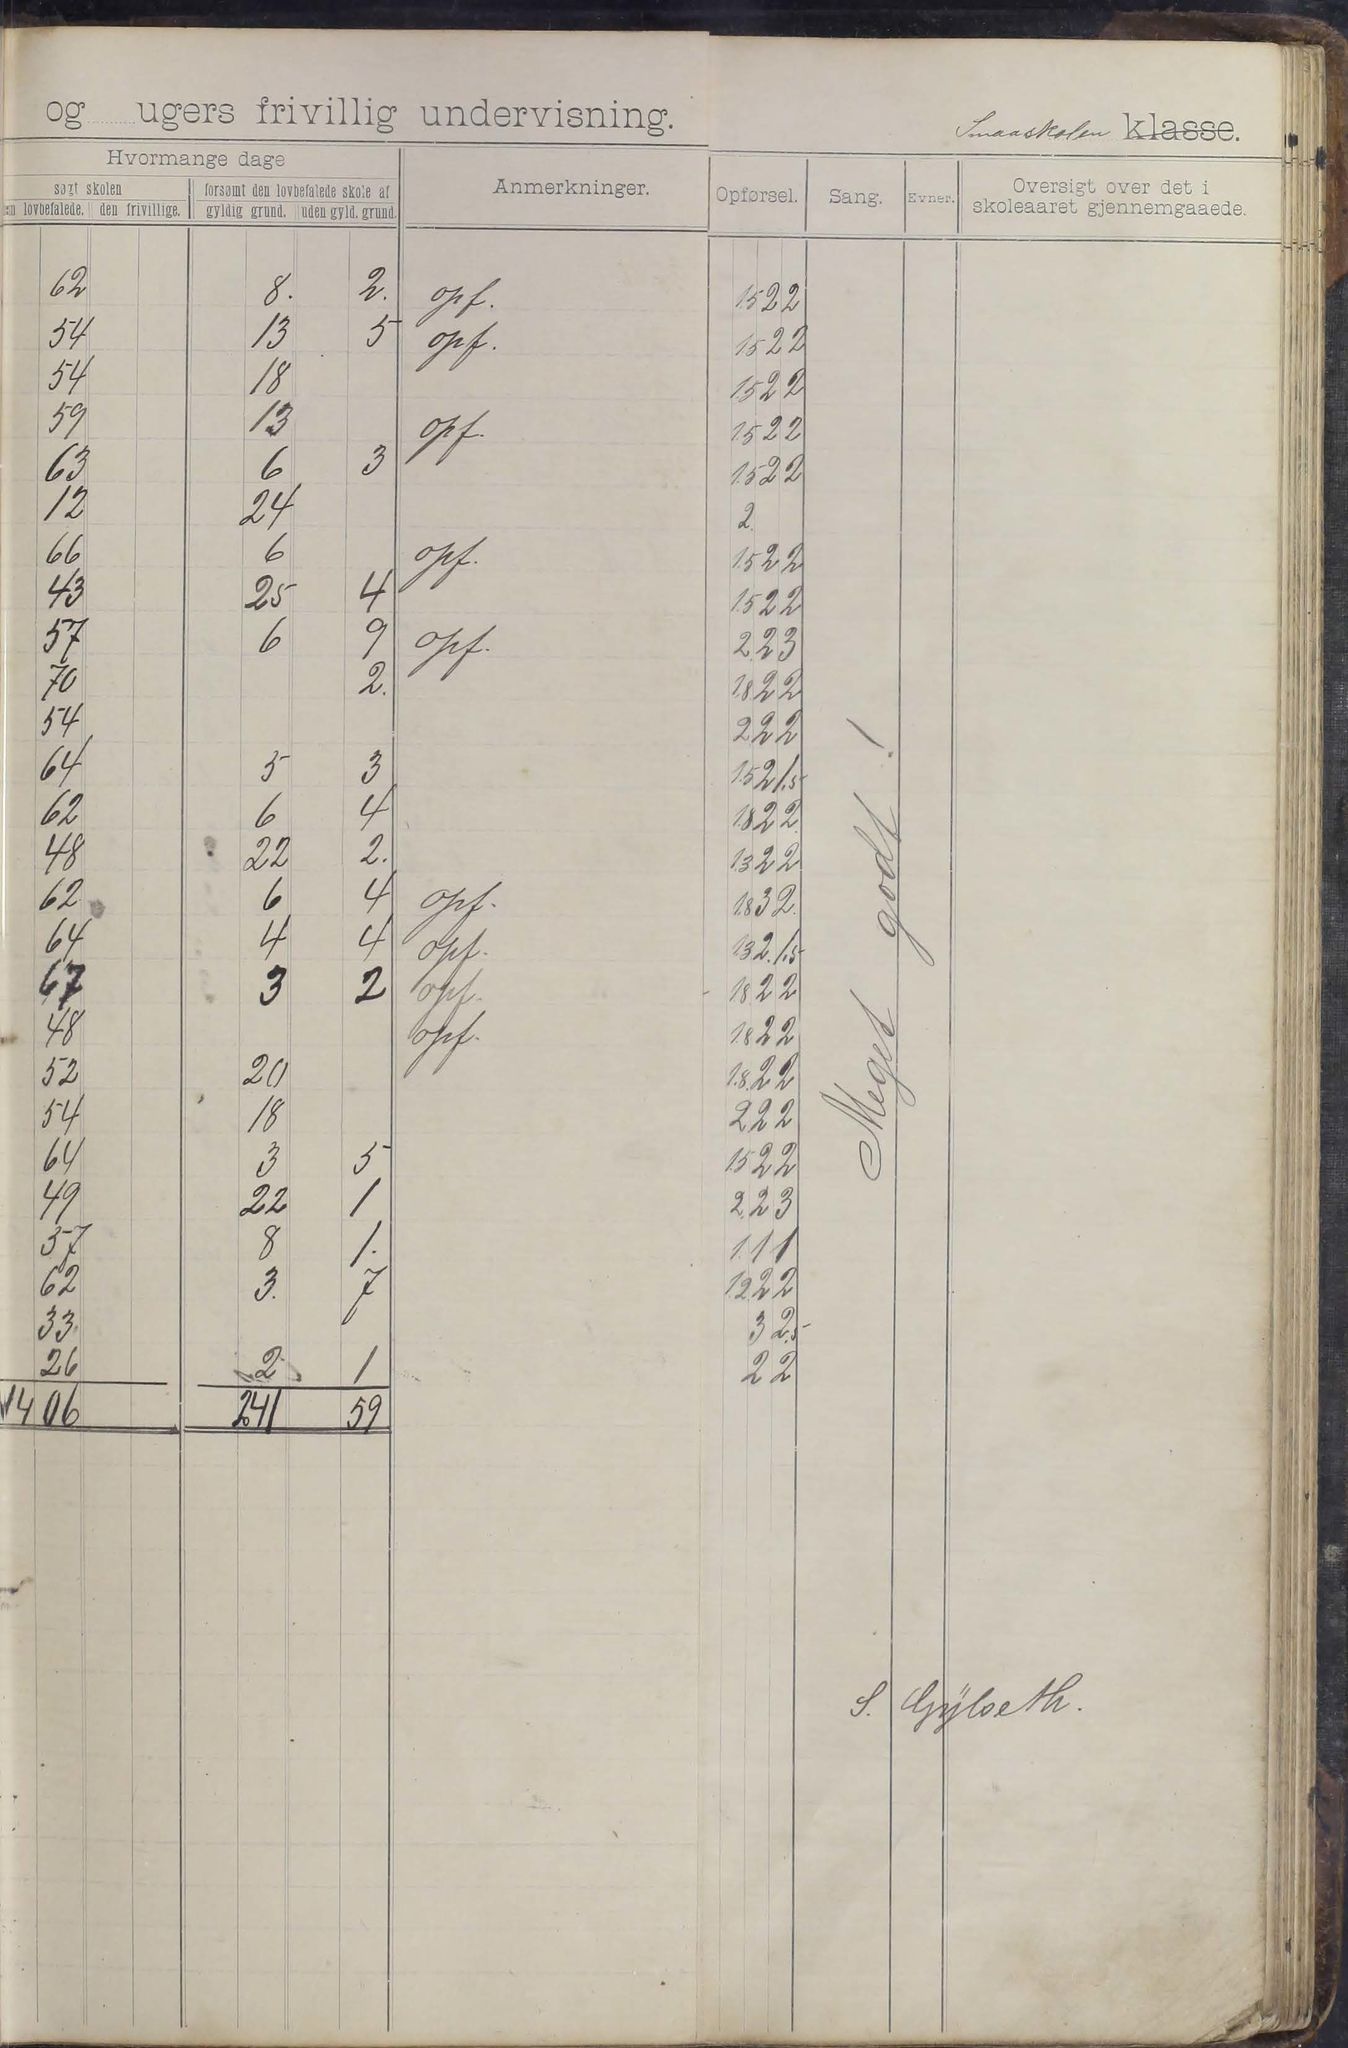 og ugers frivillig undervisning. Smaaskolen klasse.
Hvormange dage
søgt skolen forsømt den lovbefalede skole af Anmerkninger. Opførsel. Sang. Evner. Oversigt over det i
lovbefalede. den frivillige. gyldig grund. uden gyld. grund. skoleaaret gjennemgaaede.
62 8. 2. opf. 1.5 2 2
54 13 5 opf. 1.5 2 2
54 18 1.5 2 2
59 13 opf. 1.5 2 2
63 6 3 1.5 2 2
12 24 2.
66 6 opf. 1.5 2 2
43 25 4 1.5 2 2
57 6 9 opf. 2 2 3
70 2. 1.8 2 2
54 2 2 2
64 5 3 1.5 2 1.5
62 6 4 1.8 2 2.
48 22 2. 1.3 2 2
62 6 4 opf. 1.8 3 2.
64 4 4 opf. 1.3 2. 1.5
67 3 2 opf. 1.8 2 2
48 opf. 1.8 2 2
52 20 1.8 2 2
54 18 2 2 2
64 3 5 1.5 2 2
49 22 1 2 2 3
57 8 1. 1. 1 1
62 3. 7 1.2 2 2
33 3 2.5
26 2 1 2 2
1406 241 59
Meget godt!
S. Gÿlseth.